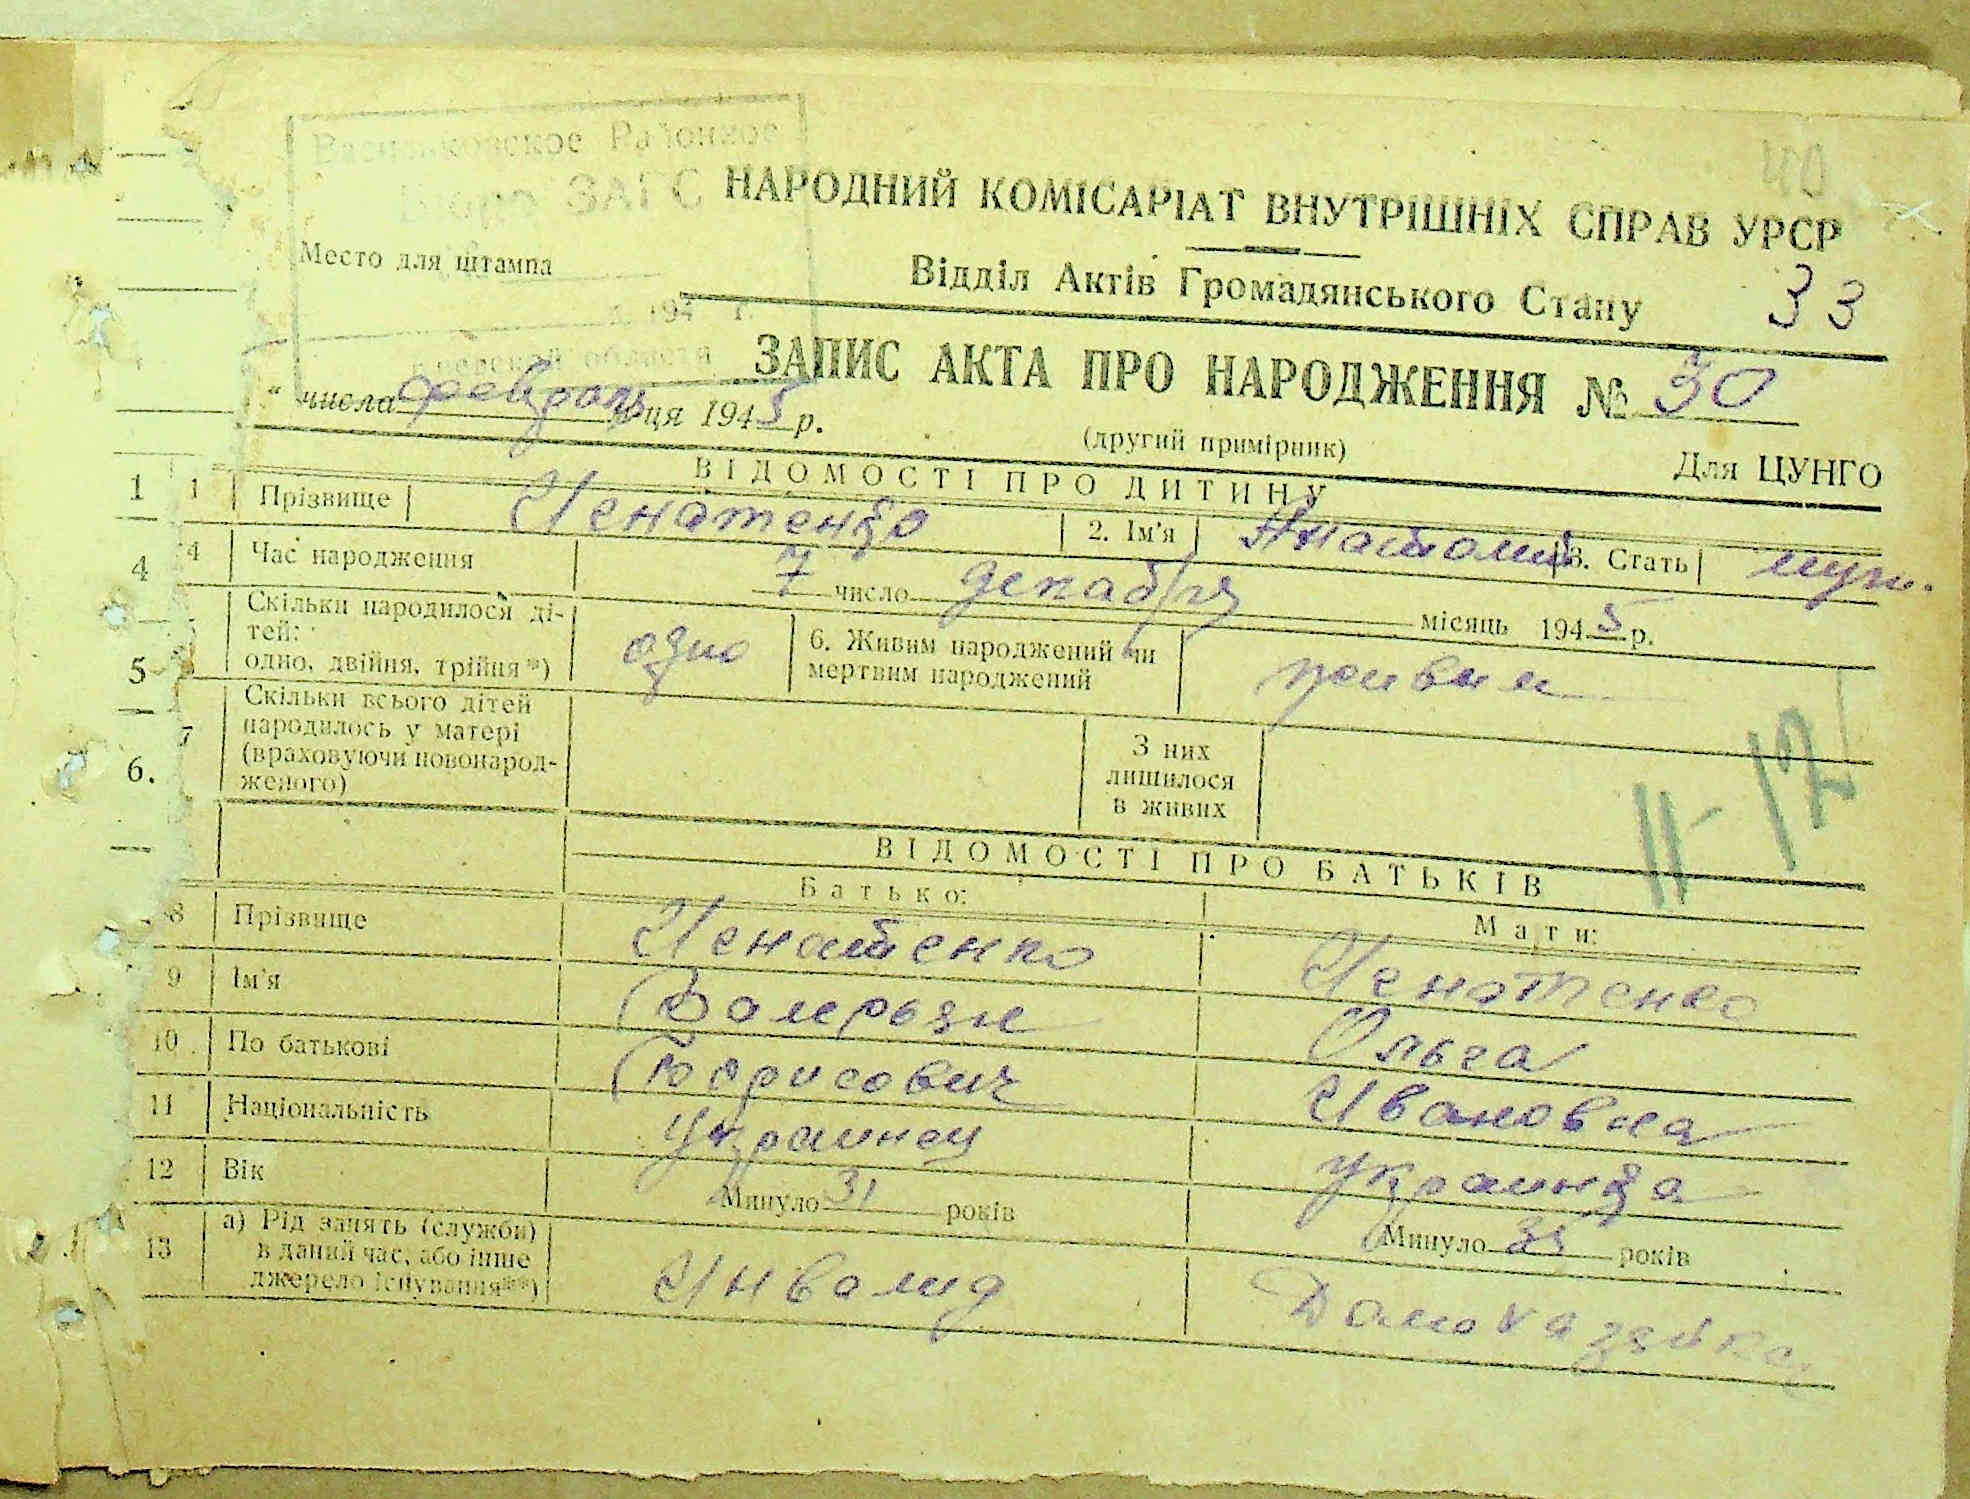 40
Васильковское Районное
Бюро ЗАГС
НАРОДНИЙ КОМІСАРІАТ ВНУТРІШНІХ СПРАВ УРСР
Место для штампа
Відділ Актів Громадянського Стану
33
194 г.
области
ЗАПИС АКТА ПРО НАРОДЖЕННЯ № 30
" числа февраль ця 1945 р.
(другий примірник)
Для ЦУНГО
ВІДОМОСТІ ПРО ДИТИНУ
1 1 Прізвище Игнатенко 2. Ім'я Анатолий 3. Стать муж.
4 4 Час народження 7 число декабря місяць 1945 р.
5 Скільки народилося ді-
тей:
одно, двійня, трійня*) одно 6. Живим народжений чи
мертвим народжений живим
6. 7 Скільки всього дітей
народилось у матері
(враховуючи новонарод-
женого)
З них
лишилося
в живих
11-12
ВІДОМОСТІ ПРО БАТЬКІВ
Батько: Мати:
8 Прізвище Игнатенко Игнатенко
9 Ім'я Валерьян Ольга
10 По батькові Борисович Ивановна
11 Національність Украинец Украинка
12 Вік Минуло 31 років Минуло 35 років
13 а) Рід занять (служби)
в даний час, або інше
джерело існування**) Инвалид Домохазяйка